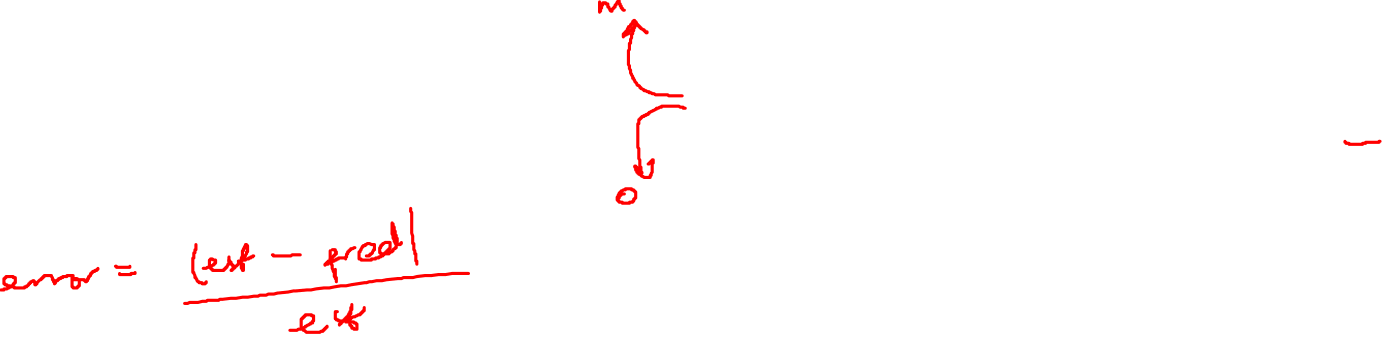 m
0
error = |est - pred|
est